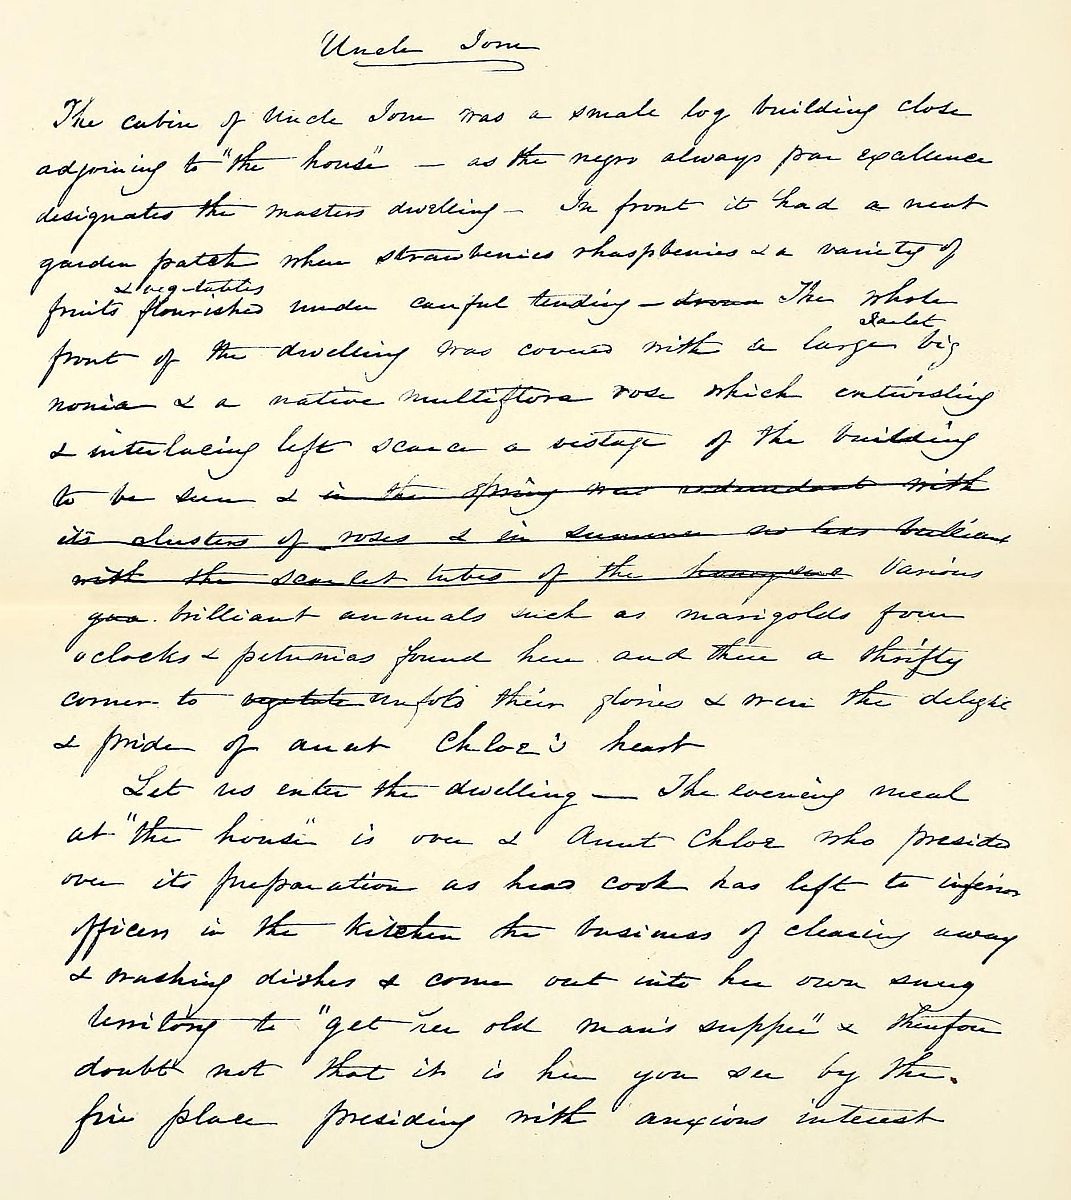 Uncle Tom
The cabin of Uncle Tom was a small log building close
adjoining to "the house" — as the negro always par excellence
designates the masters dwelling — In front it had a neat
garden patch where strawberries rhaspberries & a variety of
& vegetables
fruits flourished under careful tending — The whole
scarlet
front of the dwelling was covered with a large big
nonia & a native multiflora rose which entwisting
& interlacing left scarce a vestage of the building
to be seen & in the spring was redundant with
its clusters of roses & in summer no less brilliant
with the scarlet tubes of the honeysuc Various
gua brilliant annuals such as marigolds four
oclocks & petunias found here and there a thrifty
corner to vegetate unfold their glories & were the delight
& pride of aunt Chloe's heart
Let us enter the dwelling — The evening meal
at "the house" is over & Aunt Chloe who presided
over its preparation as head cook has left to inferior
officers in the kitchen the business of clearing away
& washing dishes & come out into her own snug
territory to "get her old man's supper" & therefore
doubt not that it is her you see by the
fire place presiding with anxious interest